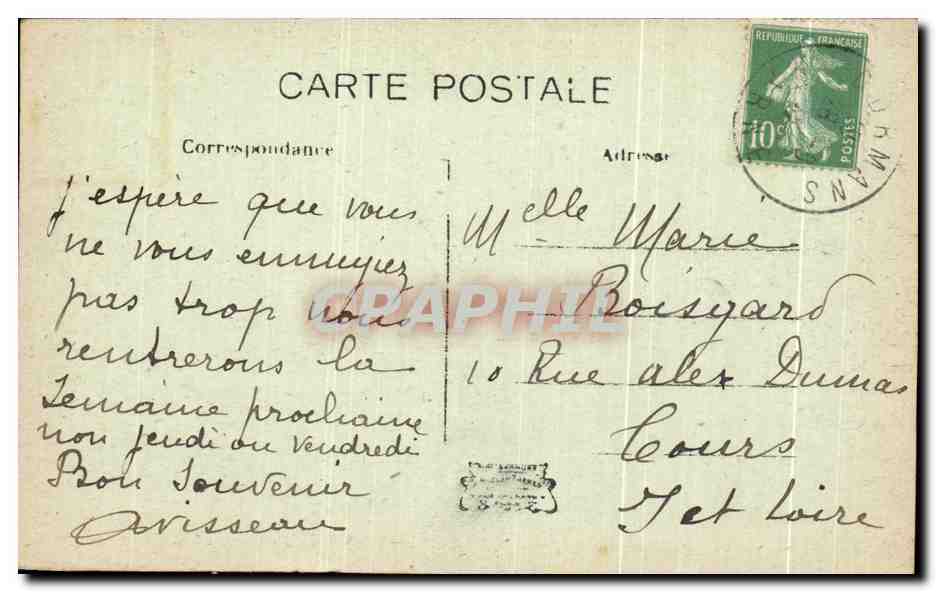 CARTE POSTALE
Correspondance
Adresse
REPUBLIQUE FRANÇAISE
10c
POSTES
J'espère que vous
ne vous ennuyiez
pas trop nous
rentrerons la
Semaine prochaine
non jeudi ou vendredi
Bon Souvenir
Avisseau
Melle Marie
Boisgard
10 Rue alex Dumas
Tours
I et Loire
GRAPHIL